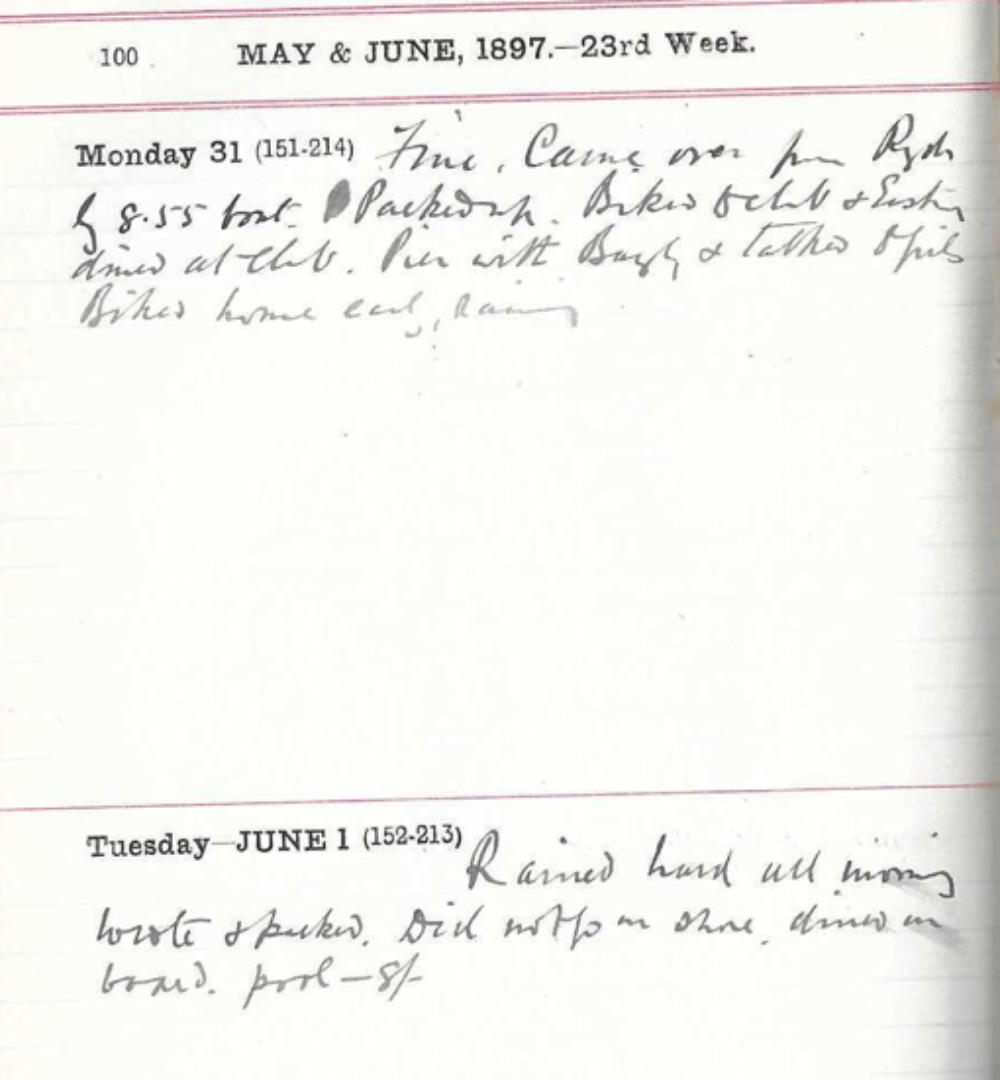 100 MAY & JUNE, 1897.—23rd Week.
Monday 31 (151-214) Fine. Came over from Ryde
by 8.55 boat. Packed up. Biked to club &
dined at Club. Pier with & talked to girls
Biked home early, raining
Tuesday—JUNE 1 (152-213) Rained hard all morning
wrote & packed. Did not go on shore. dined on
board. pool — 8/-